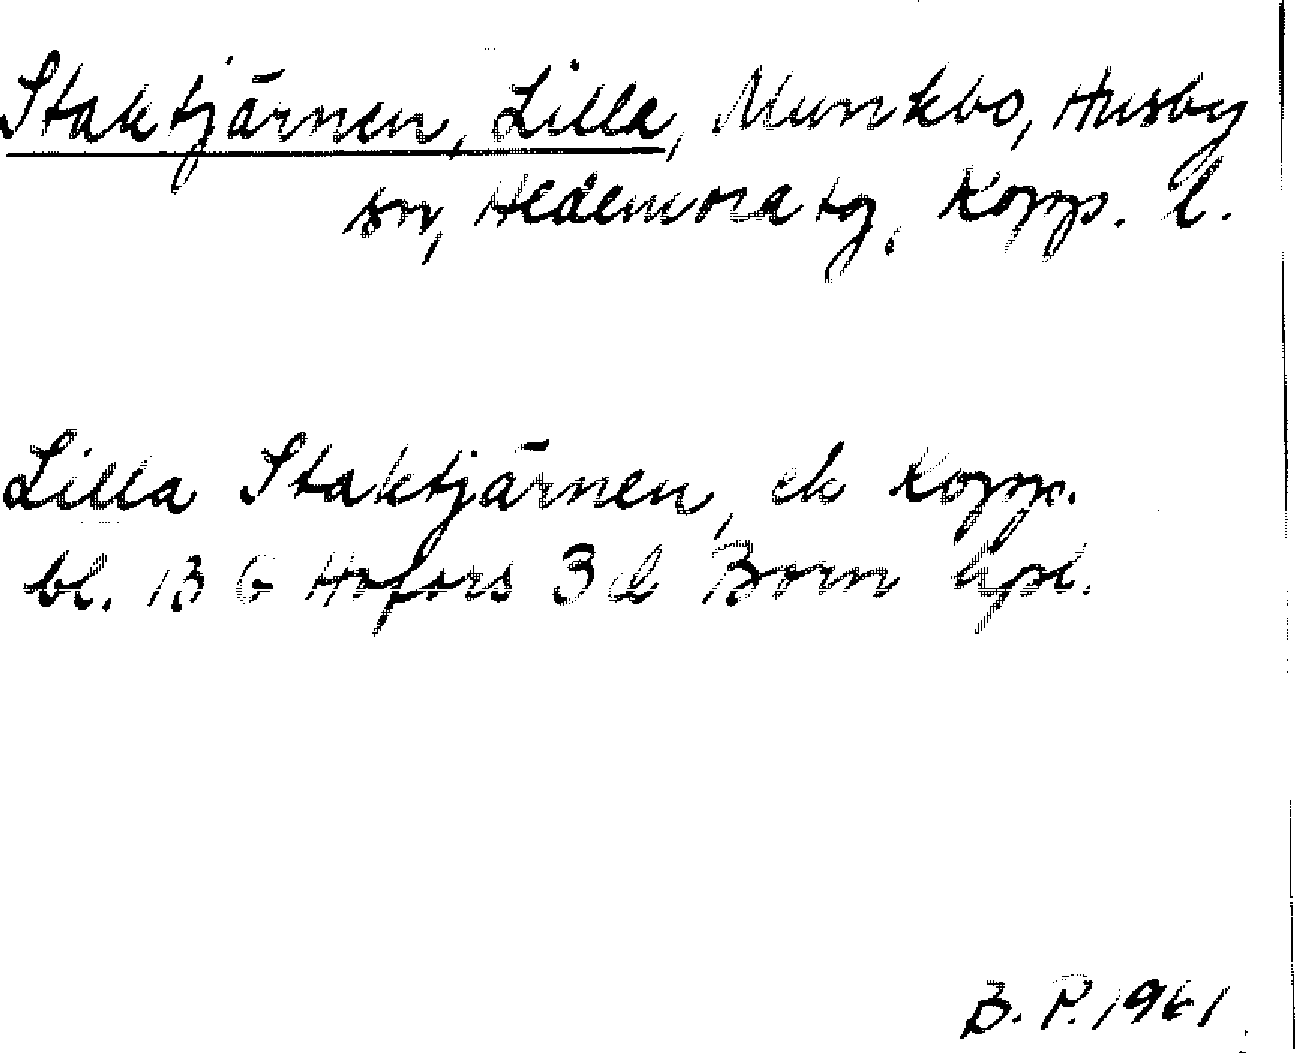 Staktjärnen, Lilla, Munkbo, Husby
sn, Hedemora tg, Kopp. l.
Lilla Staktjärnen, ek Kopp.
bl. 13 G Hofors 3 d Born
B. P. 1961